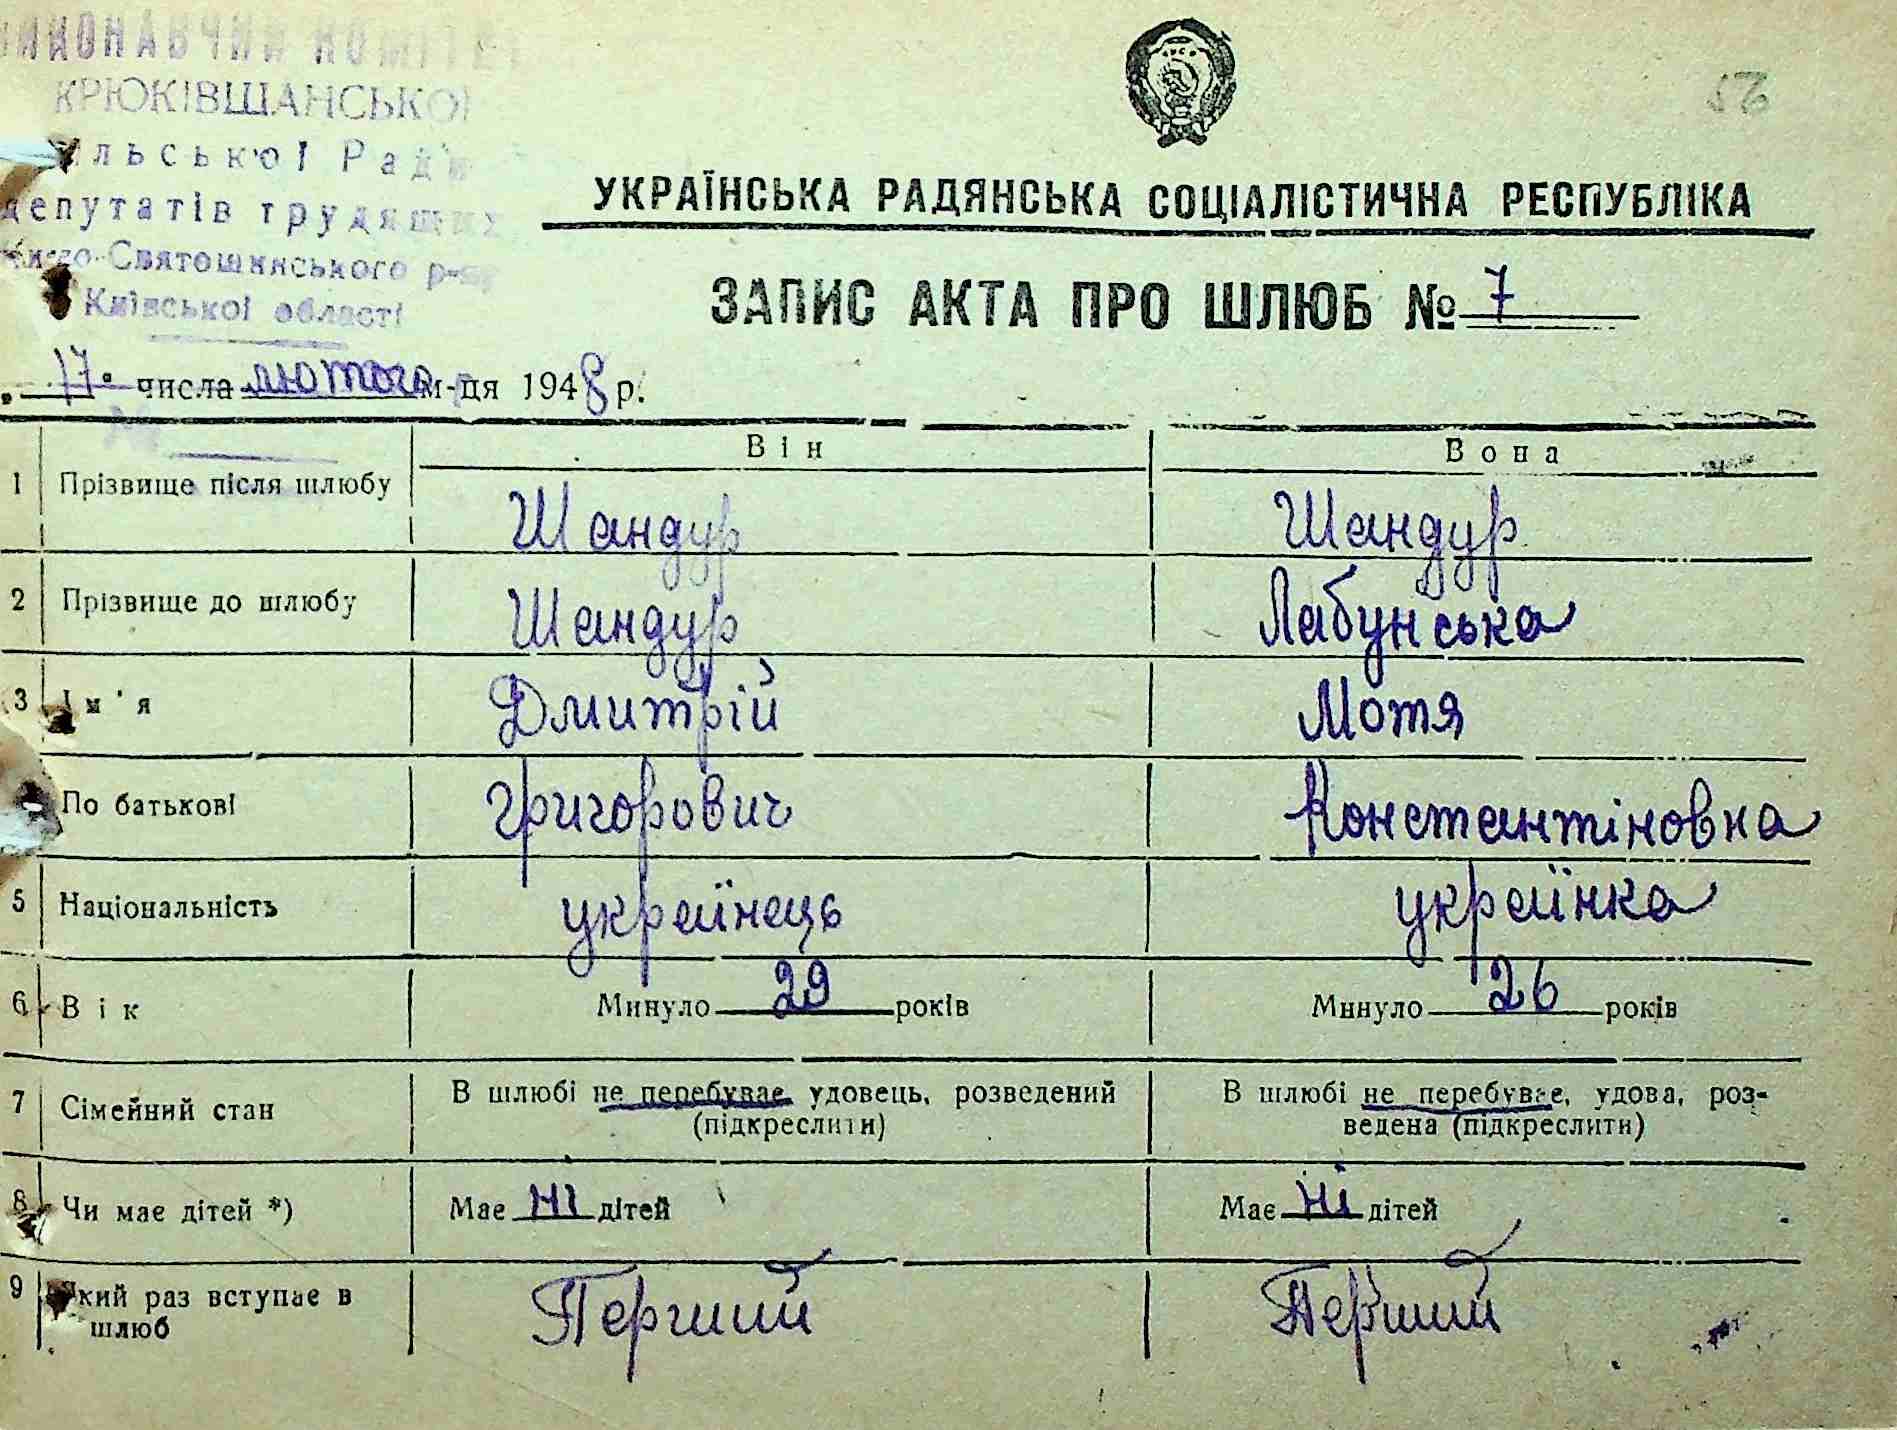 ВИКОНАВЧИЙ КОМІТЕТ
КРЮКІВЩАНСЬКОІ
сільськоі Ради
депутатів трудящих
Києво-Святошинського р-ну
Київськоі області
52
УКРАЇНСЬКА РАДЯНСЬКА СОЦІАЛІСТИЧНА РЕСПУБЛІКА
ЗАПИС АКТА ПРО ШЛЮБ № 7
17 числа лютого м-ця 1948 р.
Він Вона
1 Прізвище після шлюбу Шандур Шандур
2 Прізвище до шлюбу Шандур Лабунська
3 Ім'я Дмитрій Мотя
По батькові Григорович Константіновна
5 Національність українець українка
6 Вік Минуло 29 років Минуло 26 років
7 Сімейний стан В шлюбі не перебуває, удовець, розведений (підкреслити) В шлюбі не перебуває, удова, роз-
ведена (підкреслити)
8 Чи має дітей *) Має ні дітей Має ні дітей
9 Який раз вступає в шлюб Перший Перший